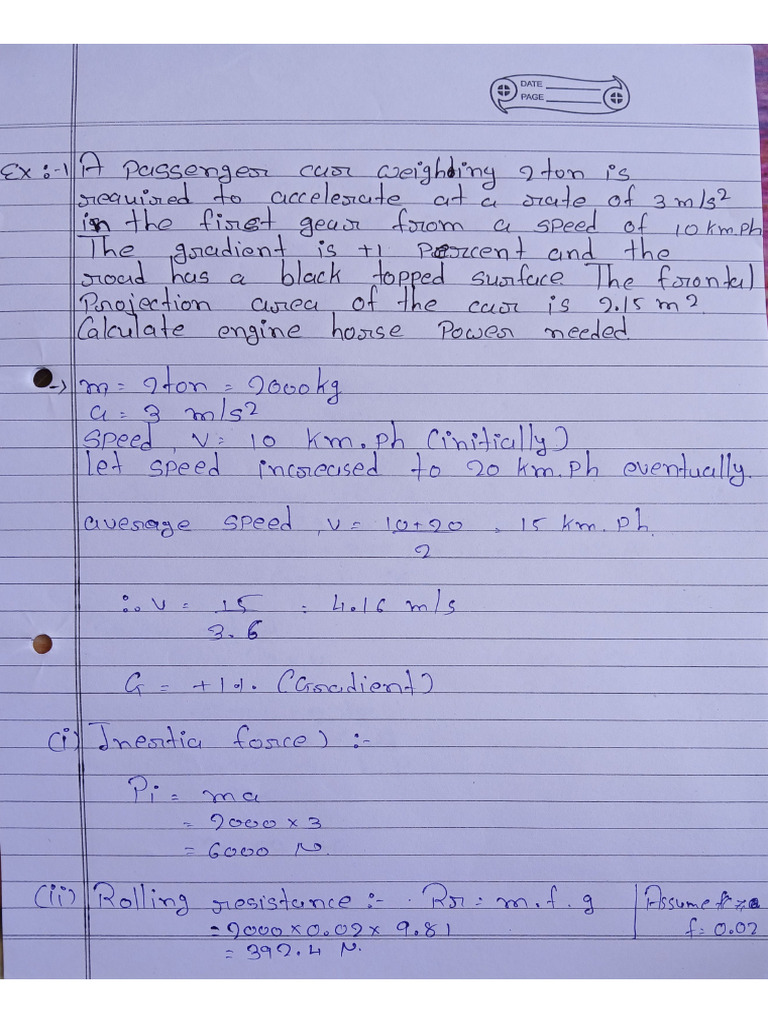 DATE
PAGE
Ex:-1 A passenger car weighing 2ton is
required to accelerate at a rate of 3 m/s2
in the first gear from a speed of 10 km.ph
The gradient is +1 Percent and the
road has a black topped surface. The frontal
Projection area of the car is 2.15 m2.
Calculate engine horse Power needed.
-> m = 2ton = 2000kg
a = 3 m/s2
Speed, v = 10 km.ph (initially)
let speed increased to 20 km.ph eventually.
average speed, v = 10+20 / 2 = 15 km.ph.
∴ v = 15 / 3.6 = 4.16 m/s
G = +1%. (Gradient)
(i) Inertia force) :-
Pi = ma
= 2000 × 3
= 6000 N.
(ii) Rolling resistance :- Rr = m.f.g | Assume
= 2000 × 0.02 × 9.81 f = 0.02
= 392.4 N.